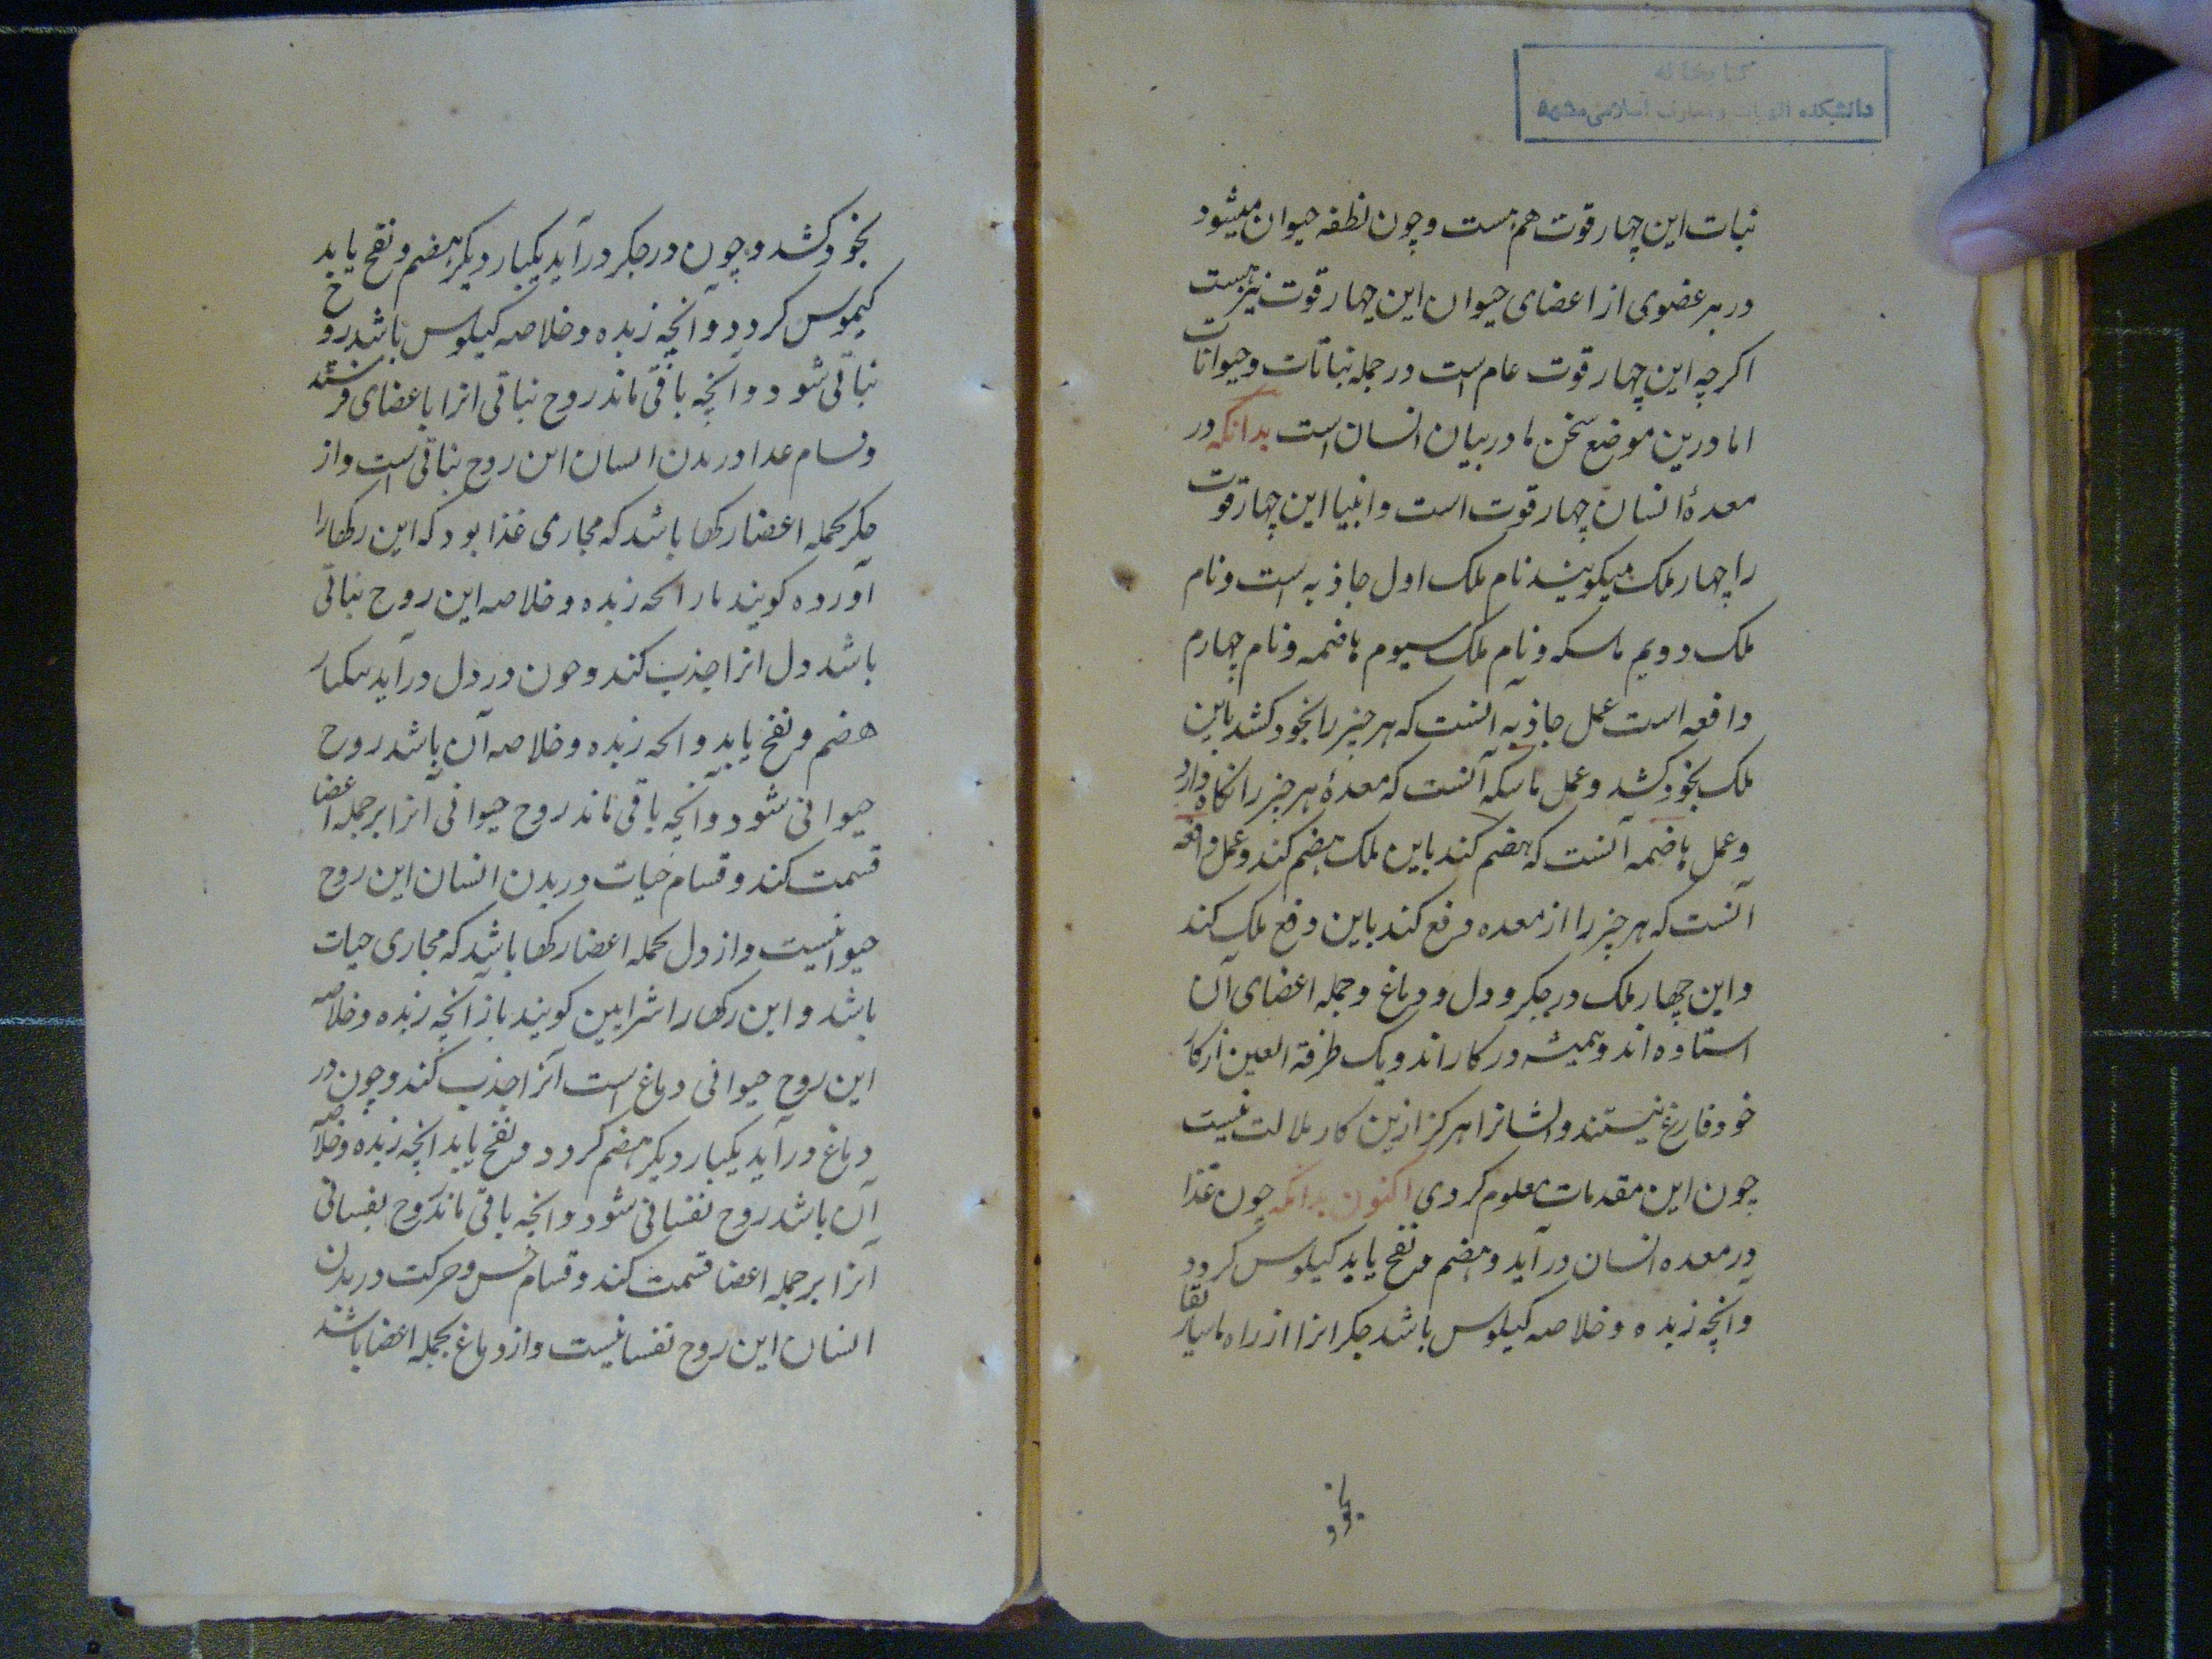 کتابخانه
دانشکده الهیات و معارف اسلامی مشهد
نبات این چهار قوت هم هست و چون نطفه حیوان میشود
در هر عضوی از اعضای حیوان این چهار قوت نیز هست
اکرچه این چهار قوت عام است در جمله نباتات و حیوانات
اما درین موضع سخن ما در بیان انسان است بدانکه در
معدهٔ انسان چهار قوت است و انبیا این چهار قوت
را چهار ملک میکویند نام ملک اول جاذبه است و نام
ملک دویم ماسکه و نام ملک سیوم هاضمه و نام چهارم
دافعه است عمل جاذبه آنست که هر چیز را بخود کشد باین
ملک بخود کشد و عمل ماسکه آنست که معدهٔ هر چیز را نکاه دارد
و عمل هاضمه آنست که هضم کند باین ملک هضم کند و عمل دافعه
آنست که هر چیز را از معده دفع کند باین دفع ملک کند
و این چهار ملک در جکر و دل و دماغ و جمله اعضای آن
استاده اند و همیشه در کار اند و یک طرفة العین از کار
خود فارغ نیستند و ایشانرا هرکز ازین کار ملالت نیست
چون این مقدمات معلوم کردی اکنون بدانکه چون غذا
در معده انسان در آید و هضم و نضج یابد کیلوس کردد
و آنچه زبده و خلاصه کیلوس باشد جکر انرا از راه ماساریقا
بخود
بخود کشد و چون در جکر در آید یکبار دیکر هضم و نضج یابد
کیموس کردد و آنچه زبده و خلاصه کیلوس باشد روح
نباتی شود و آنچه باقی ماند روح نباتی انرا باعضای فرستد
و قسام غدا در بدن انسان این روح نباتی است و از
جکر بجمله اعضا رکها باشد که مجاری غذا بود که این رکها را
آورده کویند باز انچه زبده و خلاصه این روح نباتی
باشد دل انرا جذب کند و چون در دل در آید یکبار
هضم و نضج یابد و انچه زبده و خلاصه آن باشد روح
حیوانی شود و آنچه باقی ماند روح حیوانی آنرا بر جمله اعضا
قسمت کند و قسام حیات در بدن انسان این روح
حیوانیست و از دل بجمله اعضا رکها باشد که مجاری حیات
باشد و این رکها را شرایین کویند باز آنچه زبده و خلاصه
این روح حیوانی دماغ است آنرا جذب کند و چون در
دماغ در آید یکبار دیکر هضم کردد و نضج یابد انچه زبده و خلاصه
آن باشد روح نفسانی شود و انچه باقی ماند روح نفسانی
آنرا بر جمله اعضا قسمت کند و قسام حس و حرکت در بدن
انسان این روح نفسانیست و از دماغ بجمله اعضا باشد